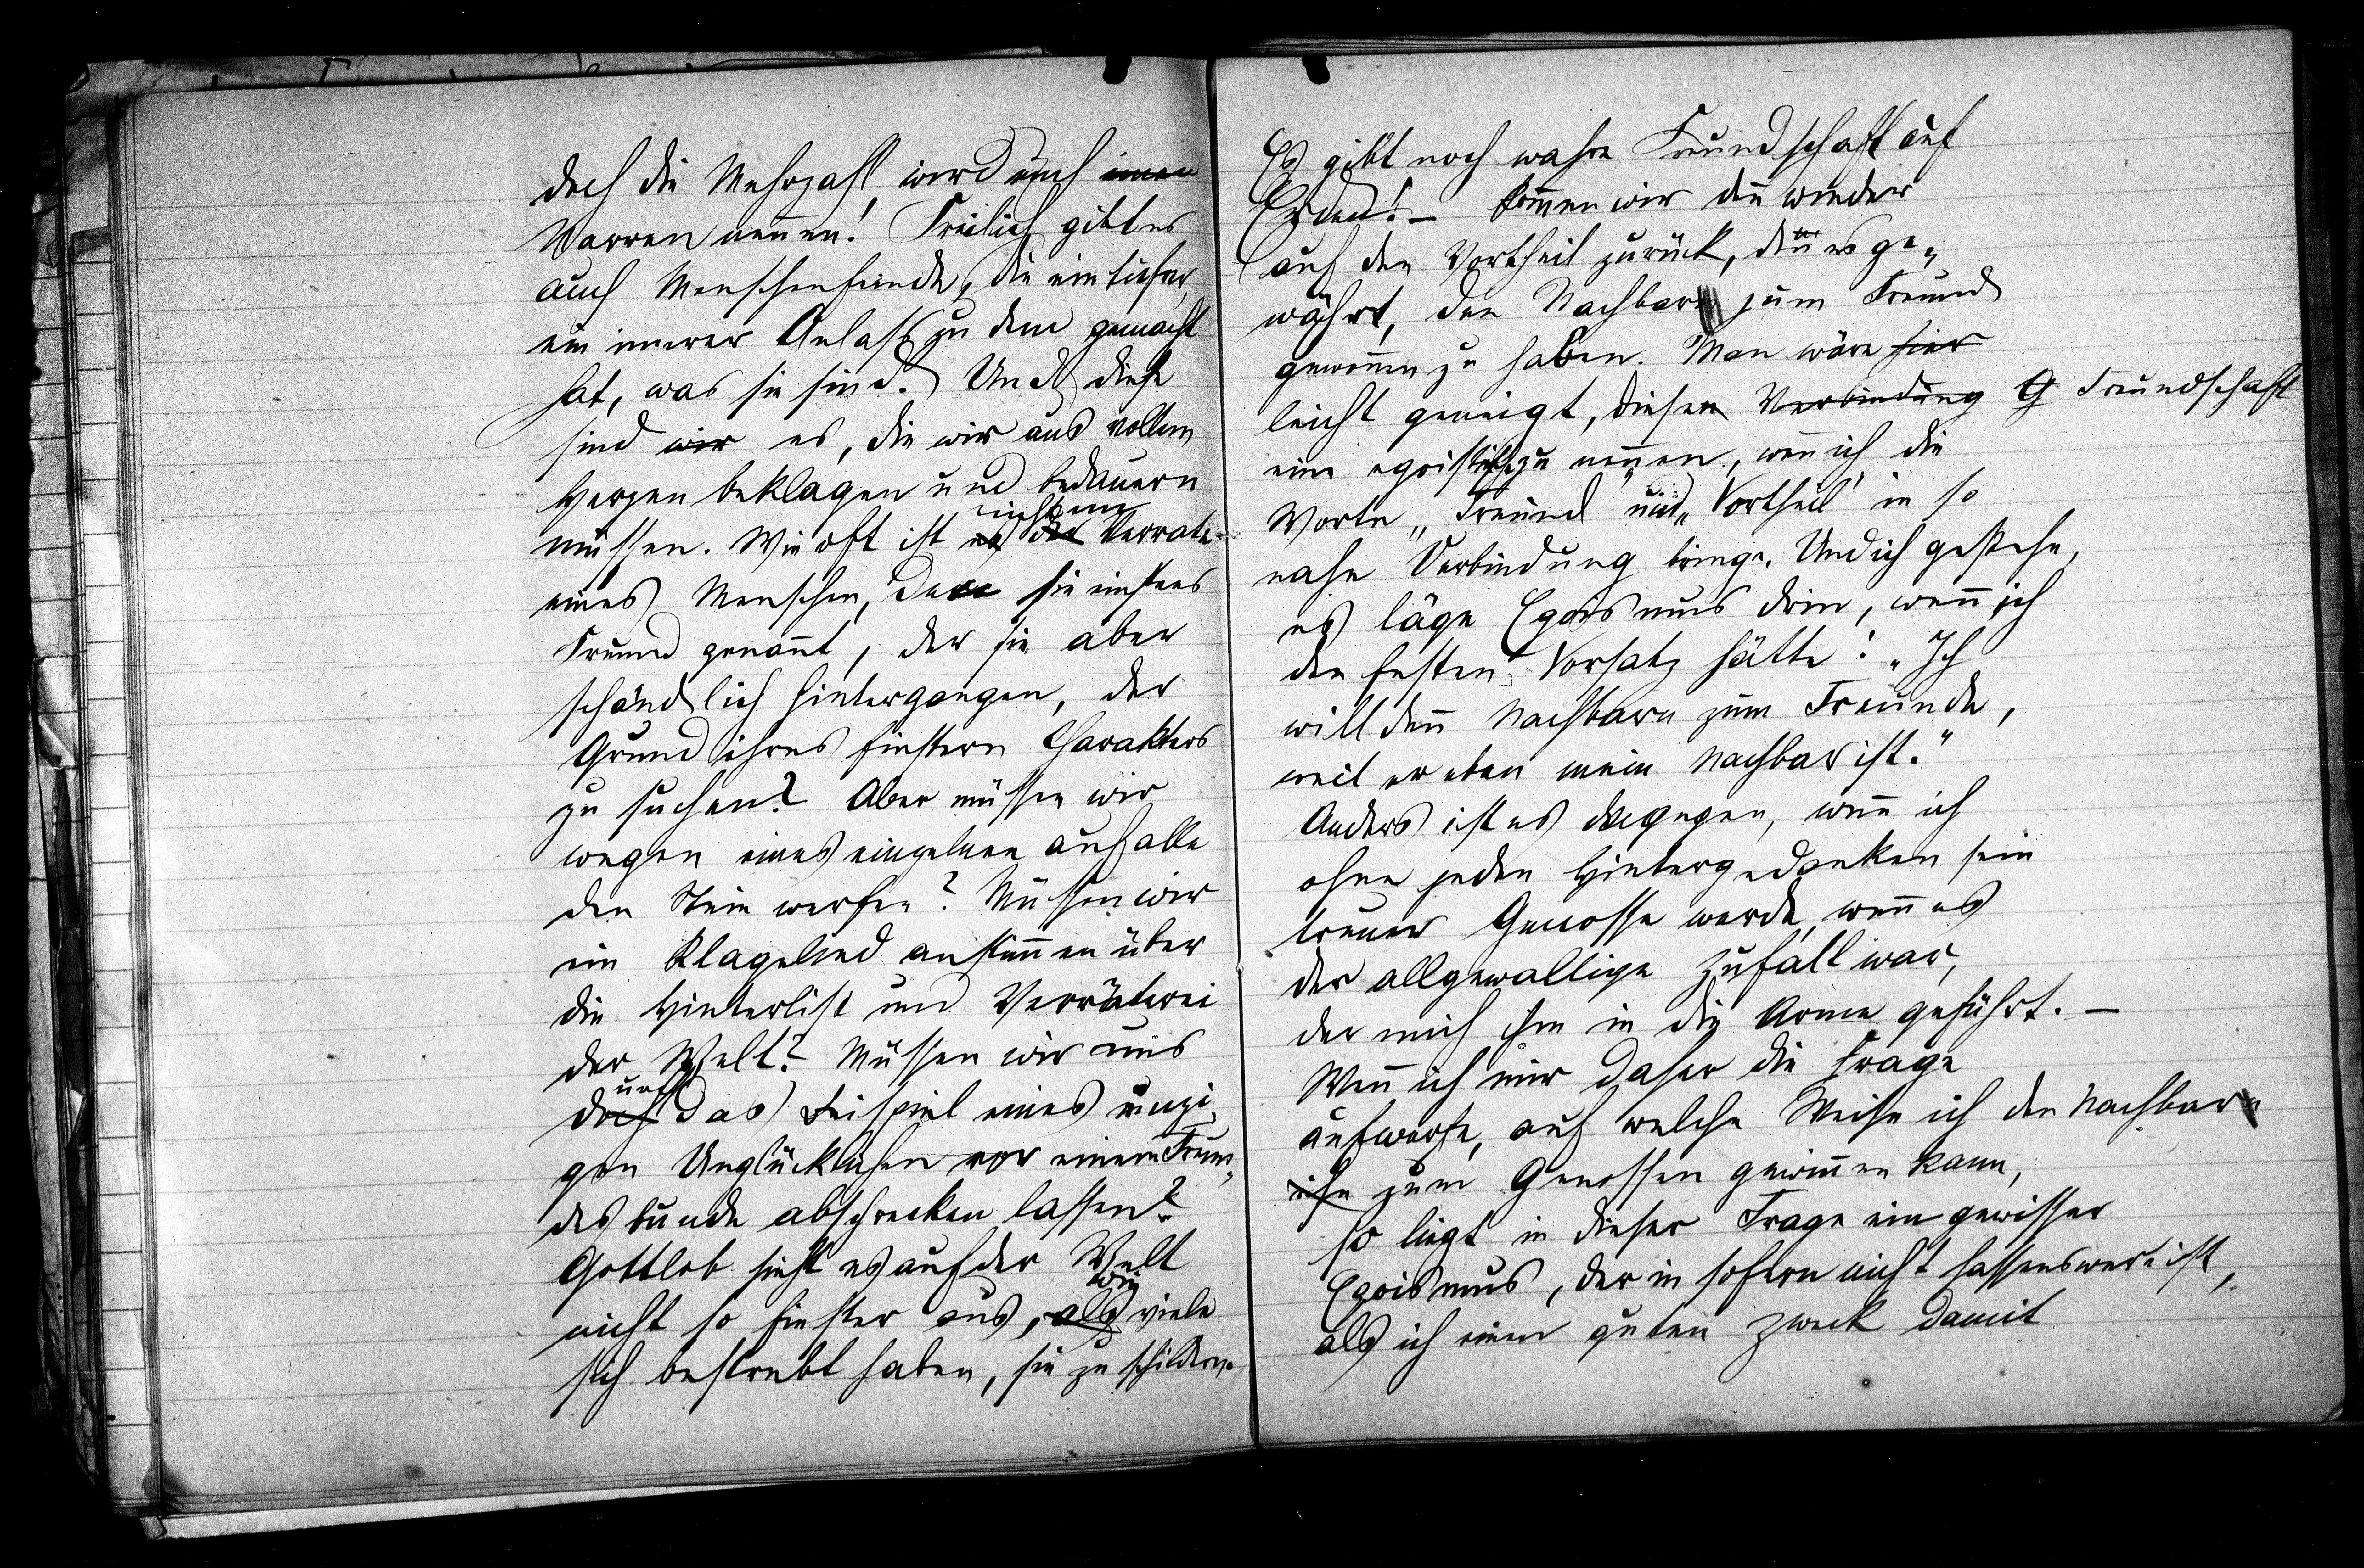 doch die Mehrzahl wird euch einen
Narren nennen! Freilich gibt es
auch Menschenfeinde, die ein tiefer,
ein innerer Anlass zu dem gemacht
hat, was sie sind. Und diese
sind wir es, die wir aus vollem
Herzen beklagen und bedauern
müssen. Wie oft ist es der nicht im Verrate
eines Menschen, den sie einstens
Freund genannt, der sie aber
schändlich hintergangen, der
Grund ihres finstern Charakters
zu suchen? Aber müssen wir
wegen eines einzelnen auf alle
den Stein werfen? Müssen wir
ein Klagelied anstimmen über
die Hinterlist und Verräterei
der Welt? Müssen wir uns
durch das Beispiel eines einzi-
gen Unglücklichen vor einem Freun-
desbunde abschrecken lassen?
Gottlob sieht es auf der Welt
nicht so finster aus, als wie viele
sich bestrebt haben, sie zu schildern.
Es gibt noch wahre Freundschaft auf
Erden! – Kommen wir denn wieder
auf den Vortheil zurück, den er es ge-
währt, den Nachbarn zum Freund
gewonnen zu haben. Man wäre hier
leicht geneigt, diesen Verbindung G Freundschaft
eine egoistische zu nennen, wenn ich die
Worte „Freund" und „Vortheil" in so
nahe Verbindung bringe. Und ich gestehe,
es läge Egoismus drin, wenn ich
den festen Vorsatz hätte: „Ich
will den Nachbarn zum Freunde,
weil er eben mein Nachbar ist."
Anders ist es dagegen, wenn ich
ohne jeden Hintergedanken sein
treuer Genosse werde, wenn es
der allgewaltige Zufall war,
der mich ihm in die Arme geführt. –
Wenn ich mir daher die Frage
aufwerfe, auf welche Weise ich den Nachbarn
ihn zum Genossen gewinnen kann,
so liegt in dieser Frage ein gewisser
Egoismus, der in sofern nicht hassenswert ist,
als ich einen guten Zweck damit